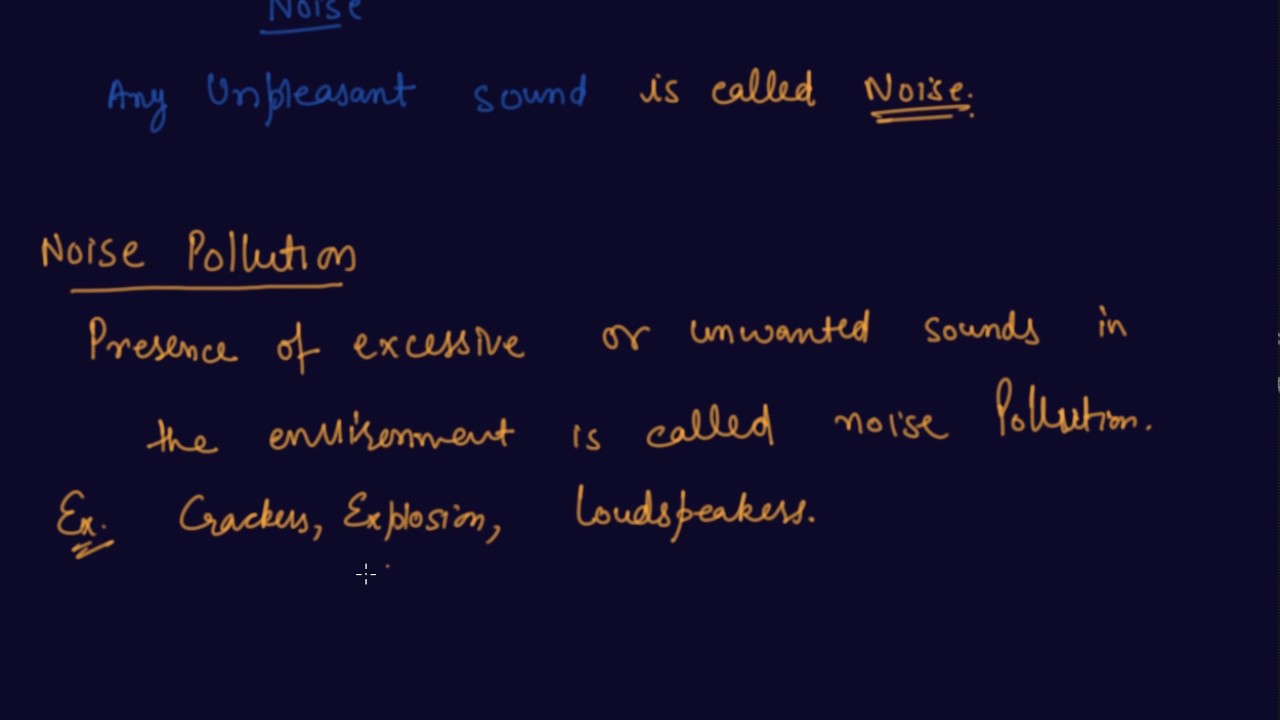 Noise
Any Unpleasant sound is called Noise.
Noise Pollution
Presence of excessive or unwanted sounds in
the environment is called noise Pollution.
Ex. Crackers, Explosion, Loudspeakers.